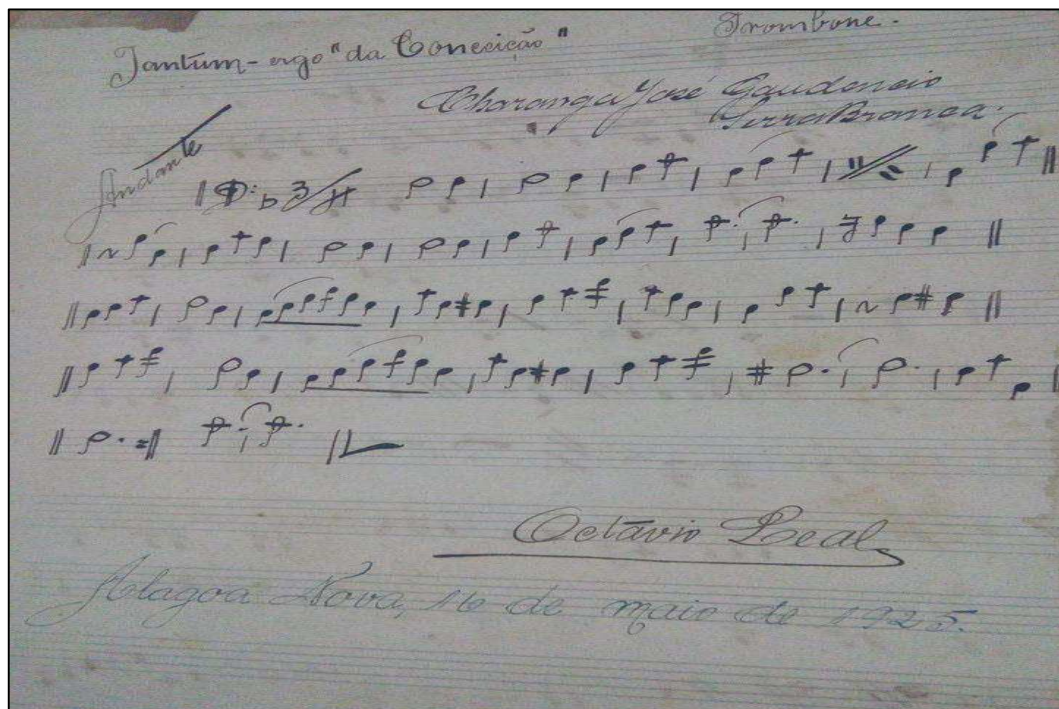 Tantum-ergo "da Conceição"
Trombone.
Charanga José Gaudencio
Serra Branca.
Andante
Octávio Leal
Alagoa Nova, 16 de maio de 1925.